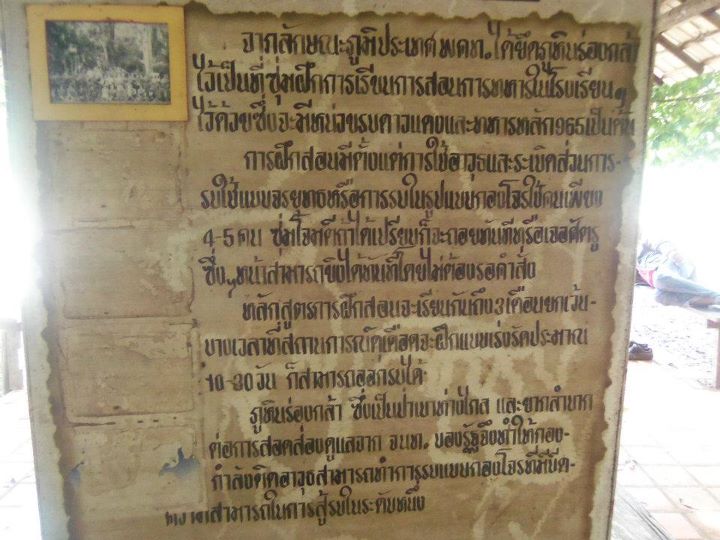 จากลักษณะภูมิประเทศ พคท. ได้ยึดภูหินร่องกล้า
ไว้เป็นที่ซุ่มฝึกการเรียนการสอนการทหารในโรงเรียน
ไว้ด้วยซึ่งจะมีหน่วยรบดาวแดงและทหารหลัก965เป็นต้น
การฝึกสอนมีตั้งแต่การใช้อาวุธและระเบิดส่วนการ-
รบใช้แบบจรยุทธหรือการรบในรูปแบบกองโจรใช้คนเพียง
4-5 คน ซุ่มโจมตีถ้าได้เปรียบก็จะถอยทันทีหรือเจอศัตรู
ซึ่งๆหน้าสามารถยิงได้ทันทีโดยไม่ต้องรอคำสั่ง
หลักสูตรการฝึกสอนจะเรียนกันถึง3เดือนยกเว้น-
บางเวลาที่สถานการณ์ดุเดือดจะฝึกแบบเร่งรัดประมาณ
10-30วัน ก็สามารถออกรบได้
ภูหินร่องกล้า ซึ่งเป็นป่าเขาห่างไกล และยากลำบาก
ต่อการสอดส่องดูแลจาก จนท. ของรัฐจึงทำให้กอง-
กำลังติดอาวุธสามารถทำการรบแบบกองโจรที่มีขีด-
สามารถในการสู้รบในระดับหนึ่ง